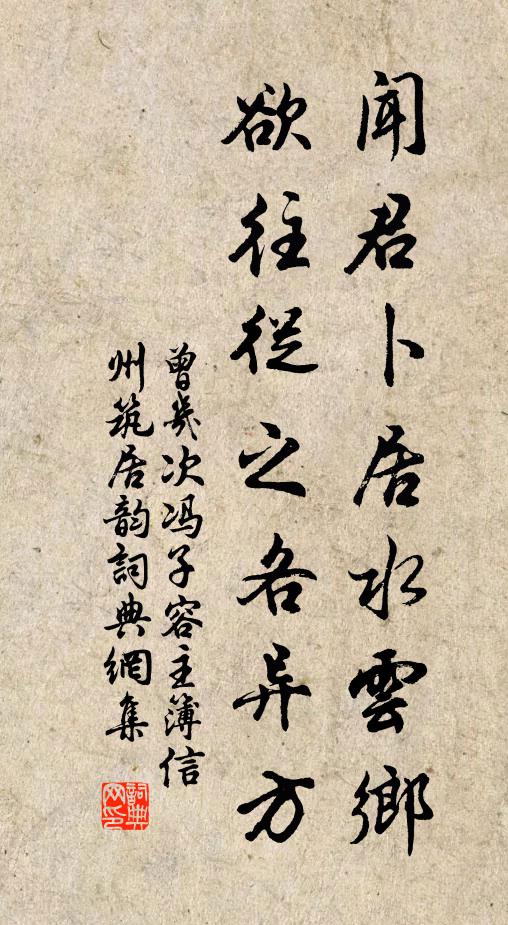 闻君卜居水雲鄉
欲往從之各异方
曾幾次冯子容主簿信
州筑居韵詞典網集
詞典
网印